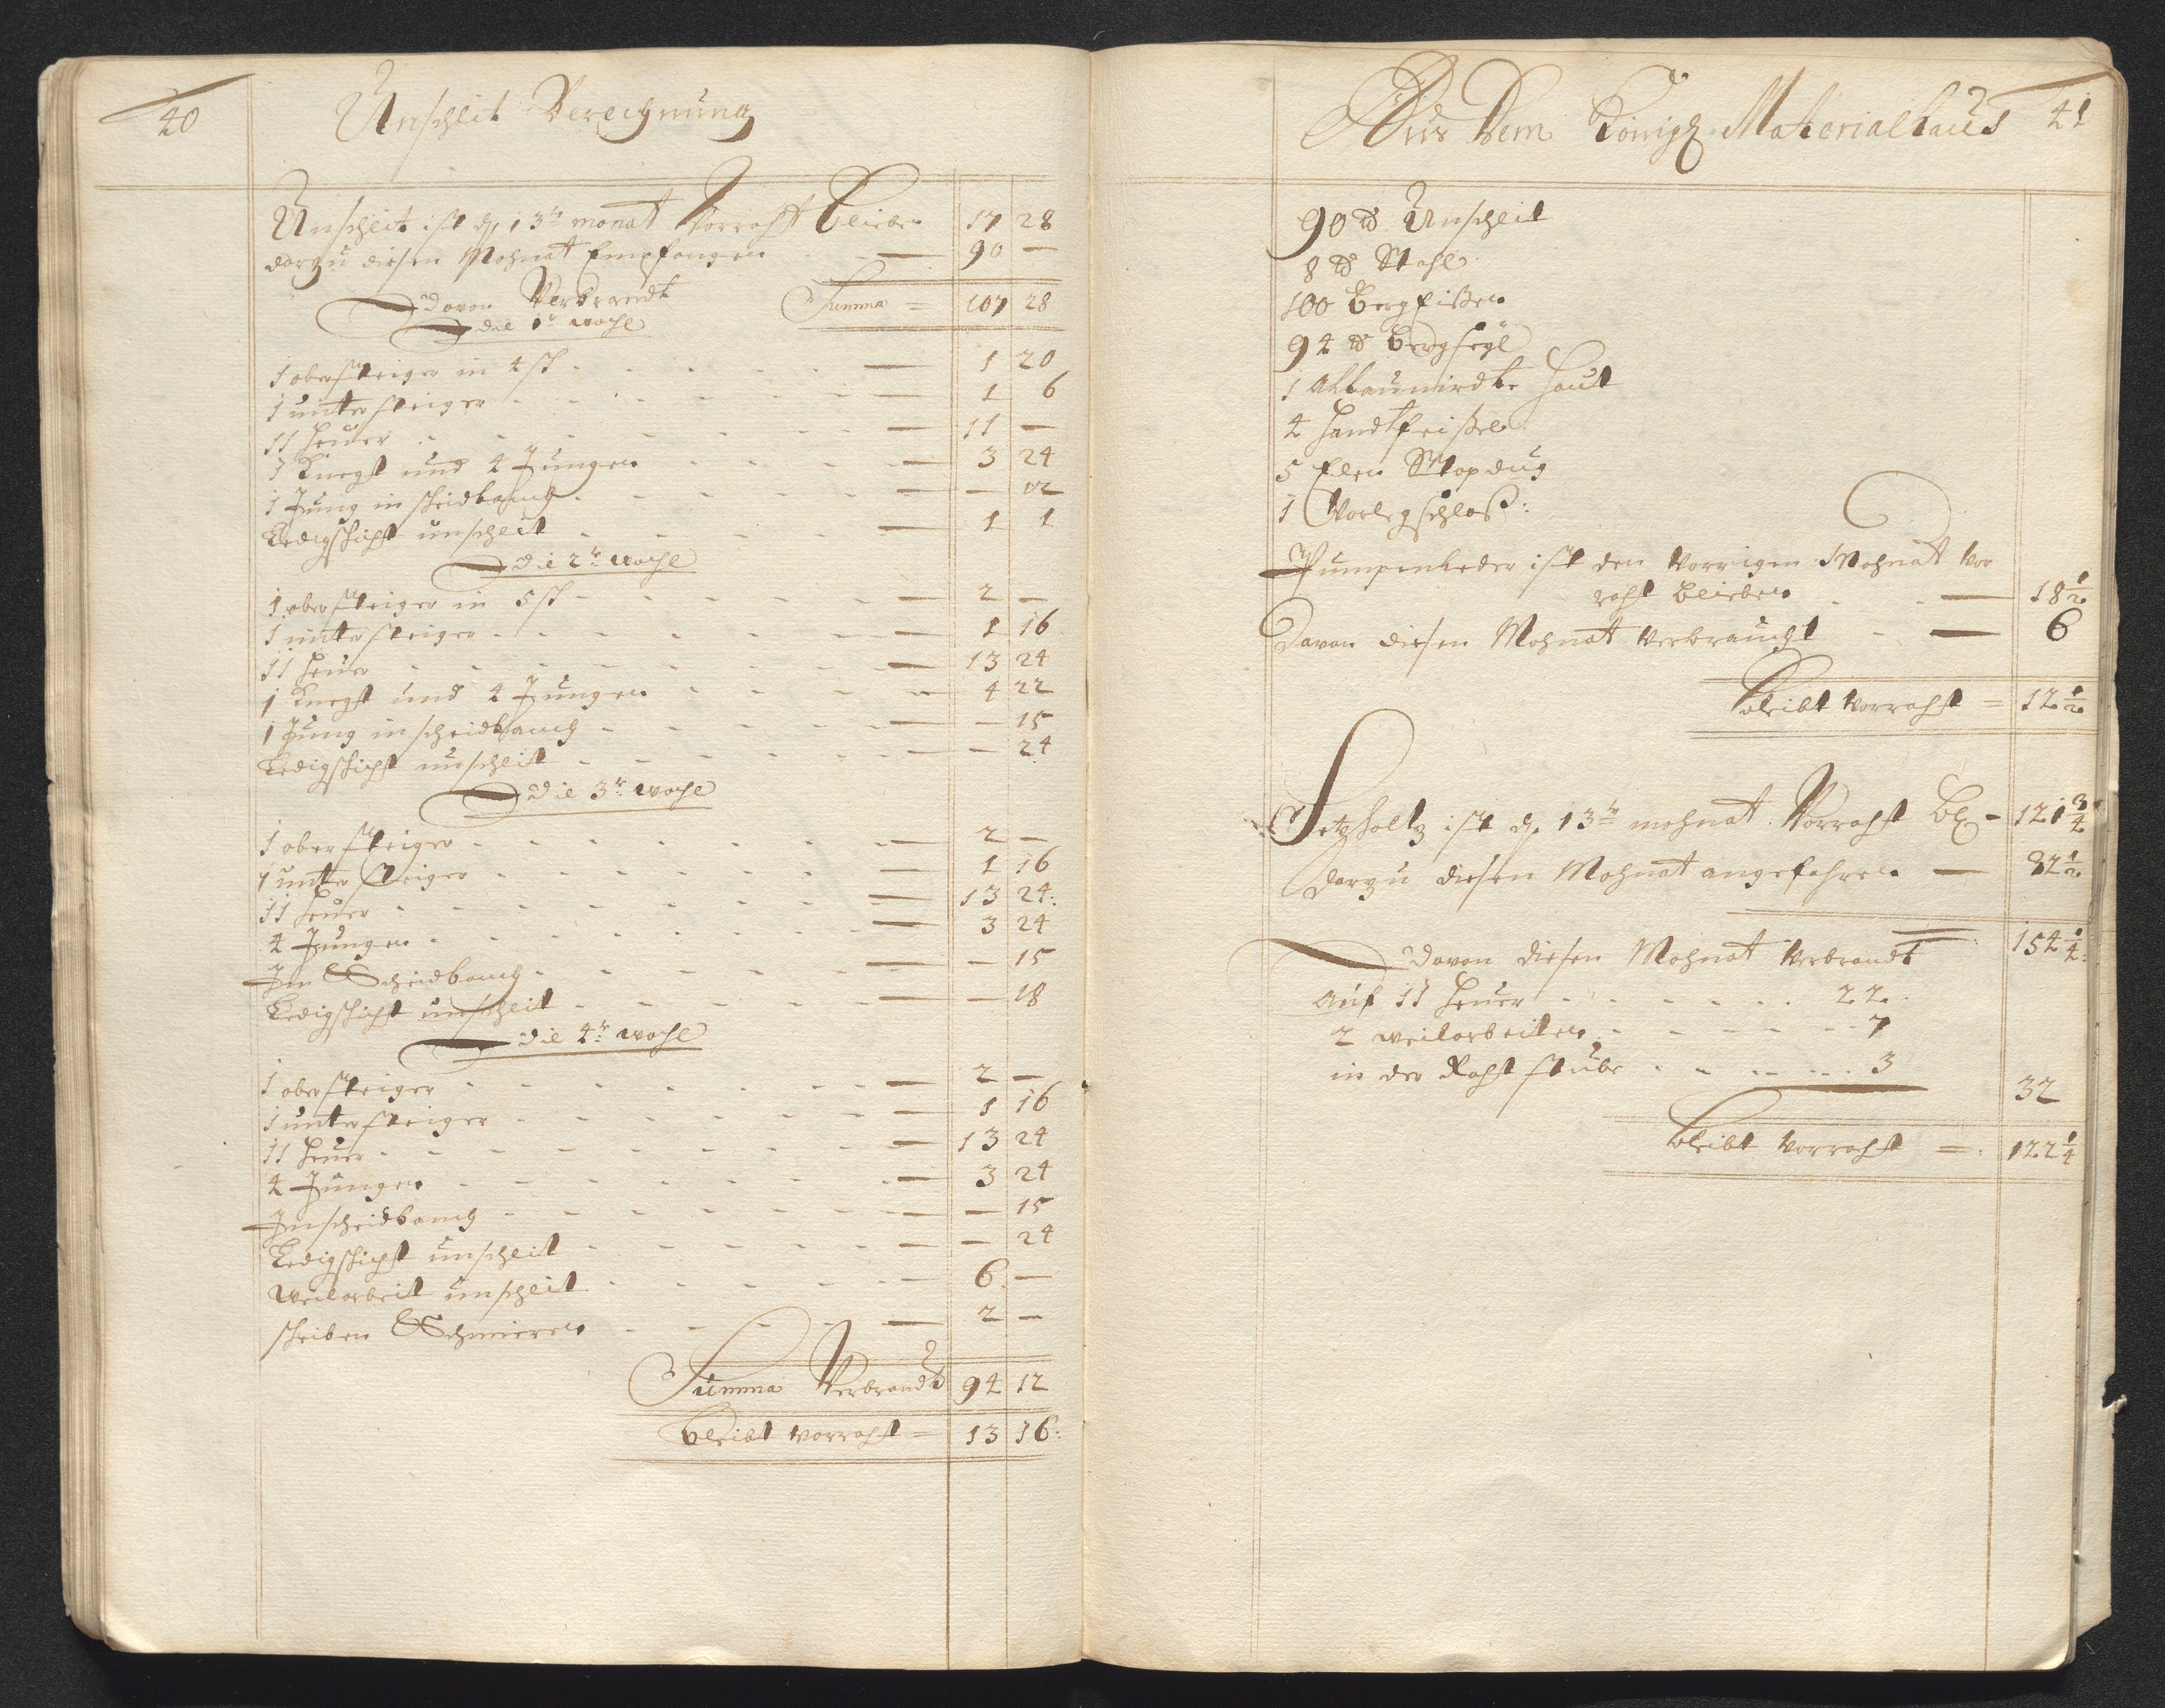 40
Unschlit Berechnung
Unschleit ist dʒ 13te monat Vorraht bleiben 17 28
darzu diesen Mohnat Empfangen — 90 —
Davon Verbrandt Summa = 107 28
die 1te woche
1 obersteiger in 4 sch - - - — 1 20
1 untersteiger - - - — 1 6
11 heuer - - - — 11 —
1 Knecht und 4 Jungen - - - — 3 24
1 Jung in scheidbanck - - - — — 12
Ledigschicht unschleit - - - — 1 1
Die 2te woche
1 obersteiger in 5 sch - - - — 2 —
1 untersteiger - - - — 1 16
11 heuer - - - — 13 24
1 Knecht und 4 Jungen - - - — 4 22
1 Jung in scheidbanck - - - — — 15
Ledigschicht unschleit - - - — — 24
Die 3te woche
1 obersteiger - - - — 2 —
1 untersteiger - - - — 1 16
11 heuer - - - — 13 24:
4 Jungen - - - — 3 24
In Scheidbanck - - - — — 15
Ledigschicht unschleit - - - — — 18
die 4te woche
1 obersteiger - - - — 2 —
1 untersteiger - - - — 1 16
11 heuer - - - — 13 24
4 Jungen - - - — 3 24
In scheidbanck - - - — — 15
Ledigschicht unschleit - - - — — 24
Weilarbeit unschleit - - - — 6 —
scheiben Schmieren - - - — 2 —
Summa Verbrandt 94 12
bleibt vorraht = 13 16:
Aus Dem Königl Materialhaus 41
90 ℔ Unschleit
8 ℔ Stahl
100 Bergeissen
94 ℔ bergsegl
1 Allaunirdte haut
4 handtfeissel
5 Elen Stopdug
1 Vorlegschloß:
Pumpenleder ist den Vorrigen Mohnat vor
raht bleiben - — 18 1/2
Davon diesen Mohnat verbraucht - — 6
bleibt vorraht = 12 1/2
Setzholtz ist dʒ 13te mohnat Vorraht bl - 121 3/4
darzu diesen Mohnat angefahren — 32 1/2
Davon diesen Mohnat verbrandt 154 1/4:
Auf 11 heuer - - - 22
2 weilarbeiten - - - 7
in der Rahtstube - - - 3
32
bleibt vorraht =: 122 1/4